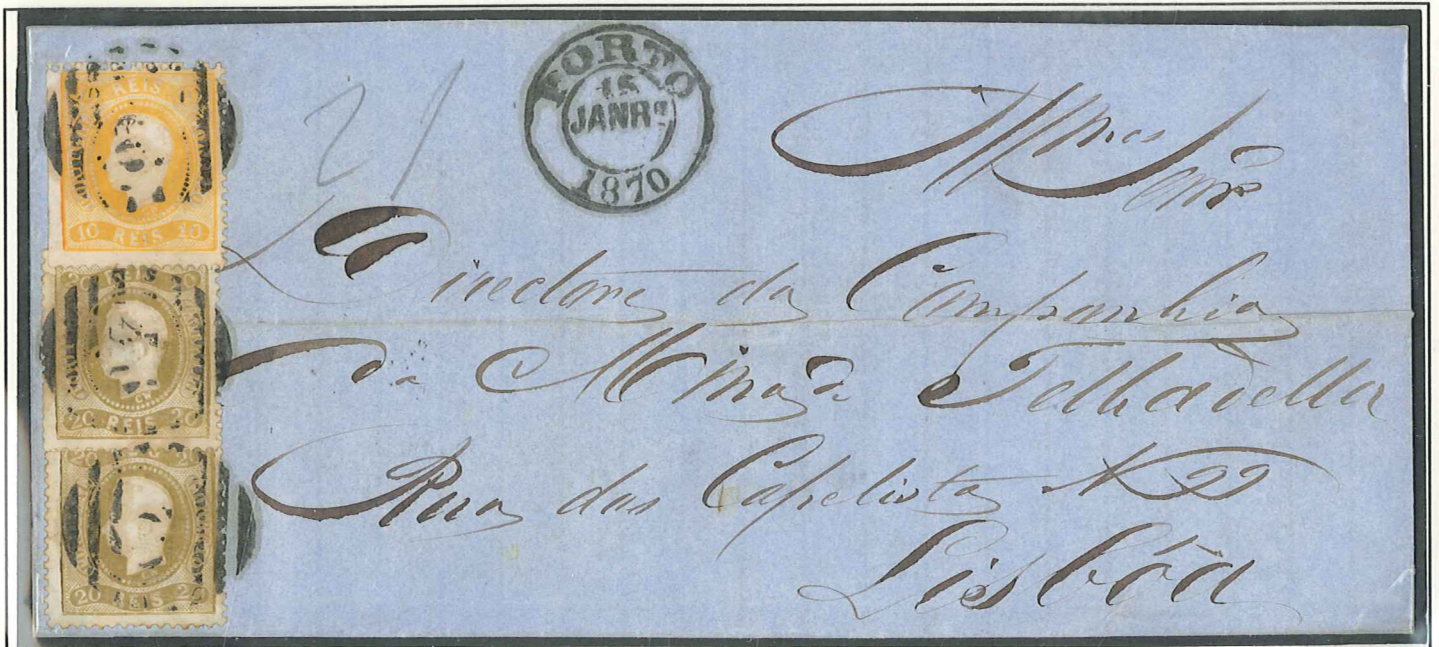 REIS
10 REIS 10
20 REIS 20
20 REIS 20
21
PORTO
15
JANRº
1870
Illmos Senrs
Directores da Companhia
da Mina de Telhadella
Rua dos Capelistas N 22
Lisbôa